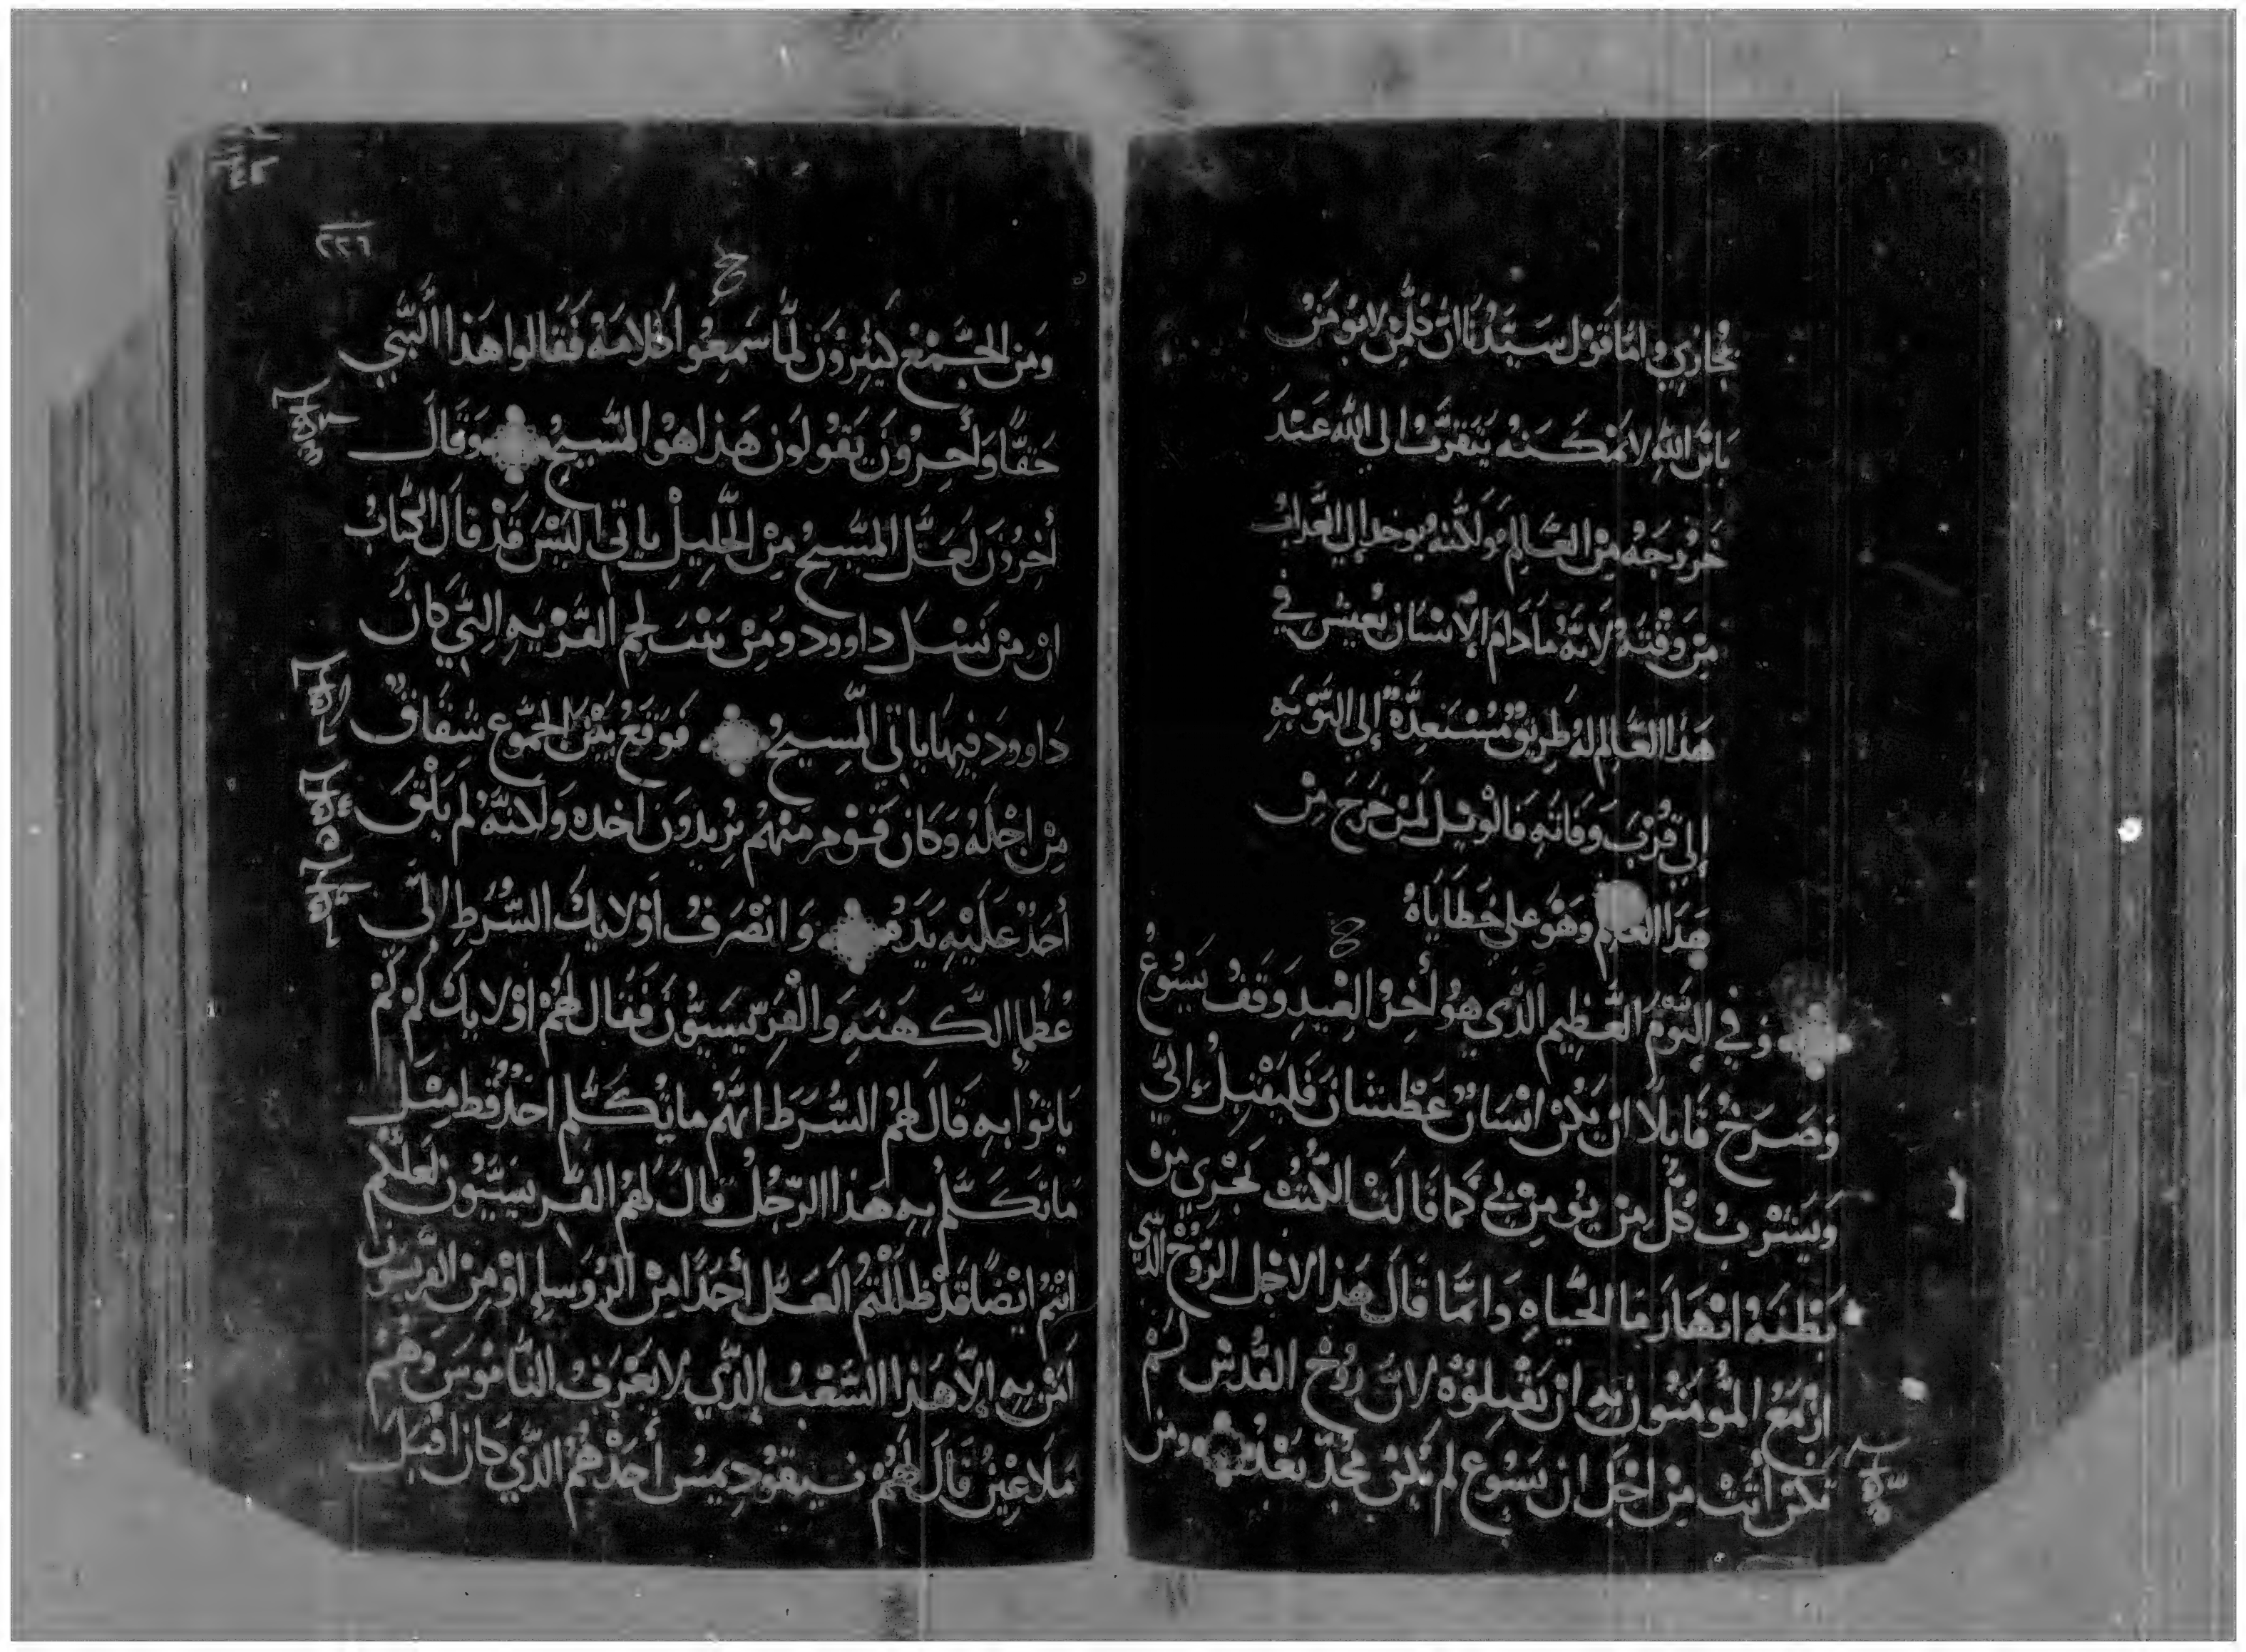 يجازي واما قول سيدنا ان كلمن لا يومن
بابن الله لا يمكنه يتقرب الي الله عند
خروجه من العالم ولكنه يوخد إلي العداب
من وقته لانه ما دام الانسان يعيش في
هذا العالم له طريق مستعدة إلي التوبه
إلي قرب وفاته فالويل لمن خرج من
هذا العالم وهو علي خطاياه
وفي اليوم العظيم الدي هو أخر العيد وقف يسوع
وصرخ قايلا ان يكن انسان عطشان فليقبل إلي
ويشرب كل من يومن بي كما قالت الكتب تجري من
بطنه انهار ما الحياه وانما قال هذا لاجل الروح الدي
ازمع المومنون به ان يقبلوه لان روح القدس لم
تكن أتت من اجل ان يسوع لم يكن مجد بعد ومن
٢٢٦
ومن الجمع كثيرون لما سمعوا كلامه فقالوا هذا النبي
حقا وأخرون يقولون هذا هو المسيح وقال
أخرون لعل المسيح من الجليل ياتي اليس قد قال الكتاب
ان من نسل داوود ومن بيت لحم القريه التي كان
داوود فيها ياتي المسيح فوقع بين الجموع شقاق
من اجله وكان قوم منهم يريدون اخده ولانه لم يلق
أحد عليه يده وانصرف اولايك الشرط الي
عظما الكهنه والفريسيون فقال لهم اولايك لم لم
ياتوا به قال لهم الشرط انهم ما يتكلم احد قط مثل
ما تكلم به هذا الرجل قال لهم الفريسيون لعلكم
انتم ايضا قد ظللتم العل أحدا من الروسا او من الفريسيون
امن به إلا هذا الشعب الدي لا يعرف الناموس وهم
ملاعين قال لهم نيقوديميس أحدهم الدي كان اقبل